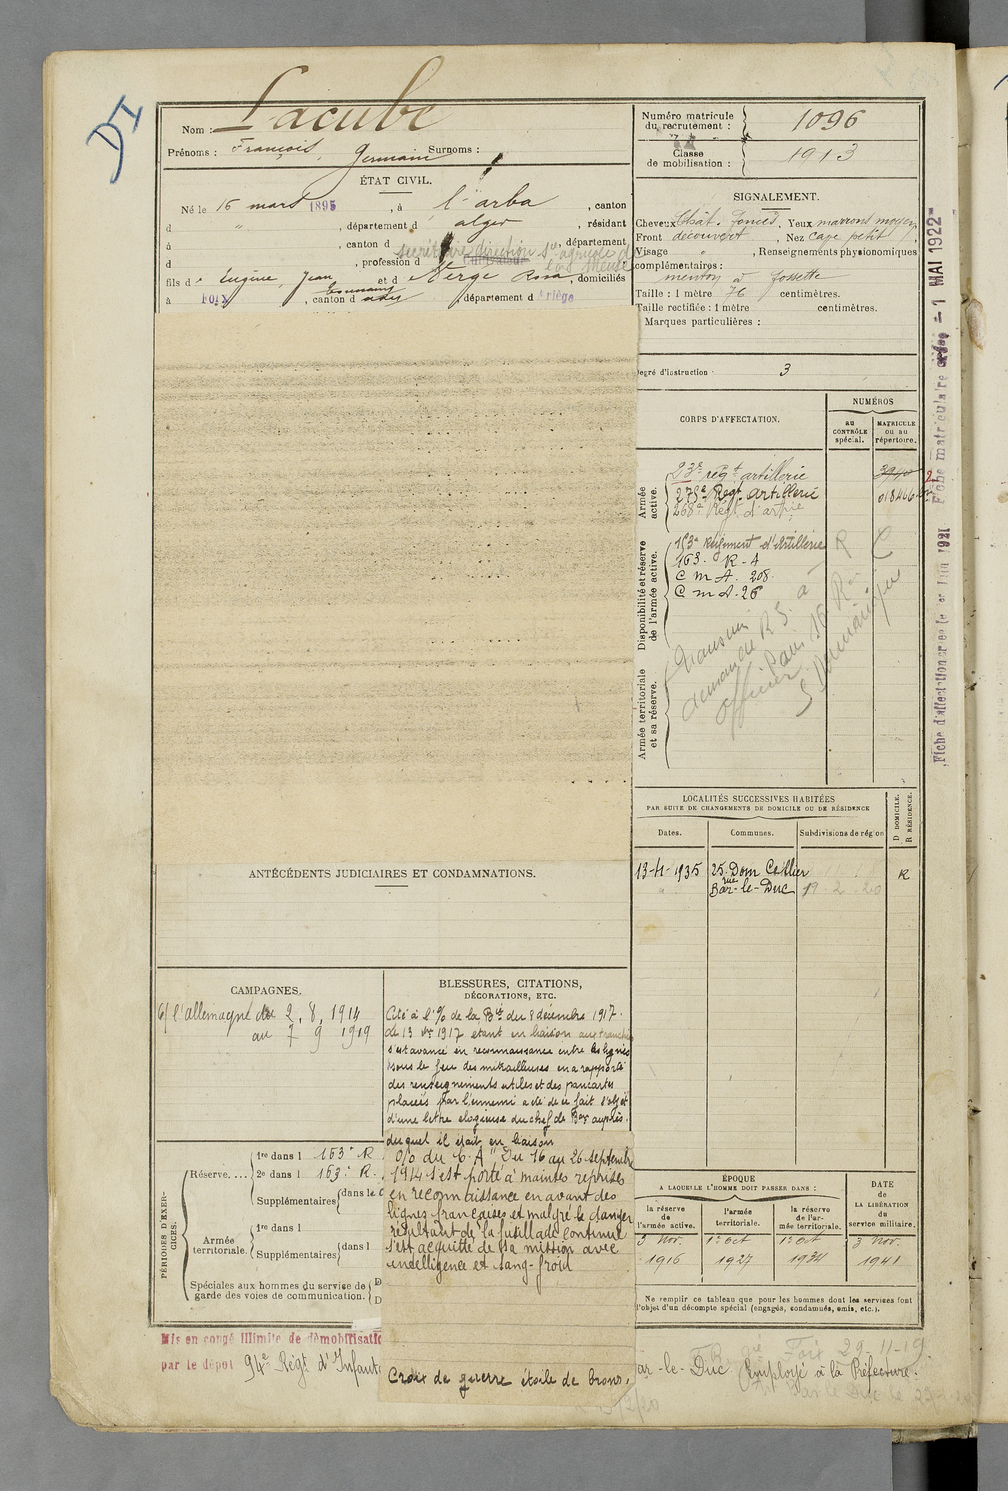 DI
Nom : Lacube
Prénoms : François, Germain Surnoms :
ÉTAT CIVIL.
Né le 16 mars 1895, à l'arba, canton
d " , département d alger, résidant
à , canton d , département
secrétaire direction agricole
d , profession d cultivateur
fils d Eugène, Jean et d Vergé Rosa, domiciliés
à Foix, canton d , département d Ariège
Numéro matricule du recrutement : 1096
Classe de mobilisation : 1913
SIGNALEMENT.
Cheveux Chât. foncés, Yeux marrons moyens
Front découvert, Nez cave petit,
Visage " , Renseignements physionomiques
complémentaires :
menton à fossette
Taille : 1 mètre 76 centimètres.
Taille rectifiée : 1 mètre centimètres.
Marques particulières :
Degré d'instruction 3
CORPS D'AFFECTATION.
NUMÉROS
au CONTRÔLE spécial.
MATRICULE ou au répertoire.
Armée active.
23e régt artillerie
278e Regt artillerie
268e Régt d'artie
Disponibilité et réserve de l'armée active.
153e Régiment d'Artillerie
163. R. A
C m A. 208.
C m A. 26
Armée territoriale et sa réserve.
Fiche matriculaire créée = 1 MAI 1922
Fiche d'affectation créée le 1921
LOCALITÉS SUCCESSIVES HABITÉES
PAR SUITE DE CHANGEMENTS DE DOMICILE OU DE RÉSIDENCE
Dates.
Communes.
Subdivisions de région
D DOMICILE.
R RÉSIDENCE.
13-4-1935 25. rue Dom Ceillier R
" Bar-le-Duc 19 - 2 - 20
ANTÉCÉDENTS JUDICIAIRES ET CONDAMNATIONS.
CAMPAGNES.
C/ l'allemagne du 2, 8, 1914
au 7 9 1919
BLESSURES, CITATIONS,
DÉCORATIONS, ETC.
Cité à l'% de la Bie du 8 décembre 1917.
Le 13 9bre 1917 etant en liaison aux tranchées
s'est avancé en reconnaissance entre les lignes
sous le feu des mitrailleuses en a rapporté
des renseignements utiles et des pancartes
placées par l'ennemi a été de ce fait l'objet
d'une lettre elogieuse du chef de Bon auprès
duquel il était en liaison
O/o du C. A " Du 16 au 26 septembre
1914 s'est porté à maintes reprises
en reconnaissance en avant des
lignes françaises et malgré le danger
résultant de la fusillade continue
s'est acquitté de sa mission avec
intelligence et sang-froid
Croix de guerre étoile de bronze
PÉRIODES D'EXERCICES.
Réserve....
1re dans l 153e R
2e dans l 153e R.
Supplémentaires dans le
Armée territoriale.
1re dans l
Supplémentaires dans l
Spéciales aux hommes du service de
garde des voies de communication.
ÉPOQUE
A LAQUELLE L'HOMME DOIT PASSER DANS :
la réserve de l'armée active.
l'armée territoriale.
la réserve de l'armée territoriale.
DATE DE LA LIBÉRATION du service militaire.
3 Nov. 1916
1er Oct 1927
1er Oct 1934
3 Nov. 1941
Ne remplir ce tableau que pour les hommes dont les services font
l'objet d'un décompte spécial (engagés, condamnés, omis, etc.).
Mis en congé illimité de démobilisatio
par le dépôt 94e Régt d'Infant
ar-le-Duc Employé à la Préfecture.
Foix 29-11-19